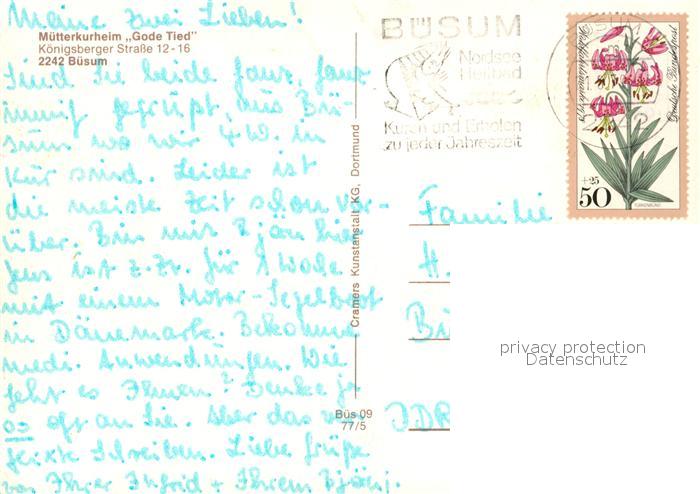 Meine zwei Lieben!
Mütterkurheim „Gode Tied"
Königsberger Straße 12-16
2242 Büsum
Sind Sie beide ganz, ganz
innig gegrüßt, aus Bü-
sum wo wir 4 W. in
Kür sind. Leider ist
die meiste Zeit schon vor-
über. Bin mit Björn hier
Jens ist z.Zt. für 1 Woche
mit einem Motor-Segelboot
in Dänemark. Bekomme
medi. Anwendungen. Wie
geht es Ihnen? Denke ja
so oft an Sie. Aber das
Schreiben. Liebe Grüße
von Ihrer Ingrid + Ihrem Björn.
Cramers Kunstanstalt KG, Dortmund
Büs 09
77/5
BÜSUM
Nordsee
Heilbad
Kuren und Erholen
zu jeder Jahreszeit
BÜSUM
Deutsche Bundespost
+25
50
TÜRKENBUND
Familie
H.
Bü
DDR
privacy protection
Datenschutz